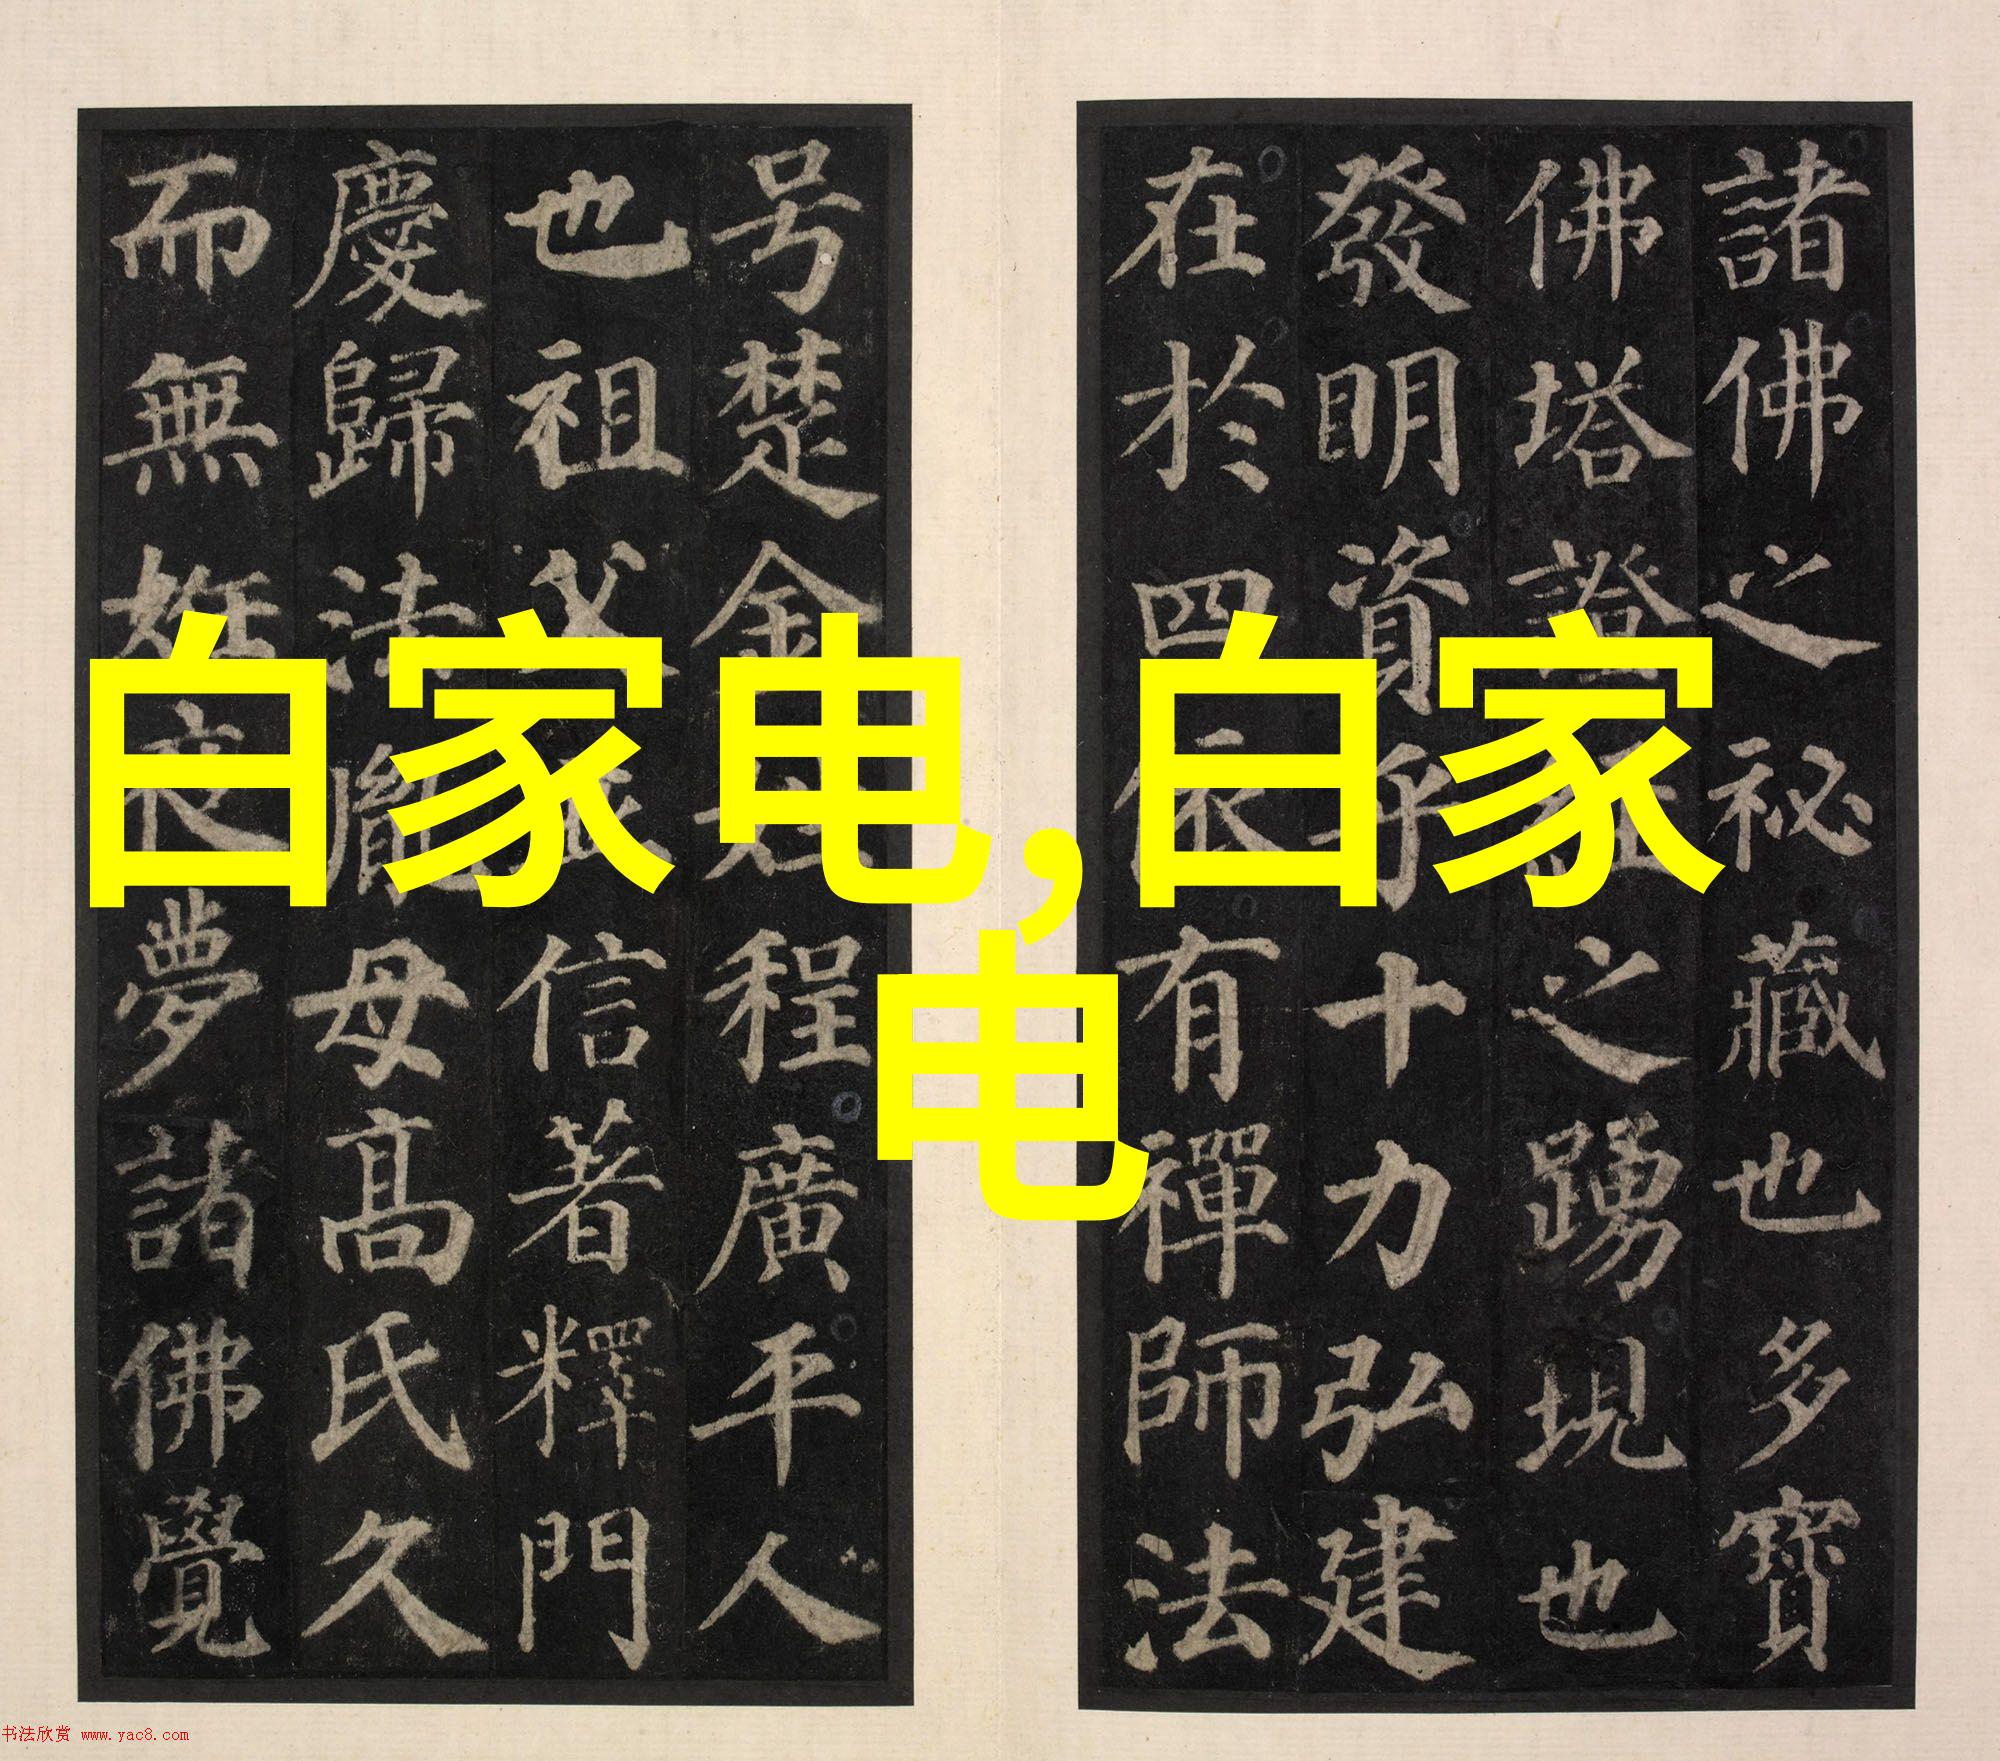 諸佛之祕藏也多寶
佛塔證經之踴現也
發明資乎十力弘建
在於四依有禪師法
号楚金姓程廣平人
也祖父並信著釋門
慶歸法胤母髙氏久
而無姙夜夢諸佛覺
白家电,白家
电
书法欣赏 www.yac8.com